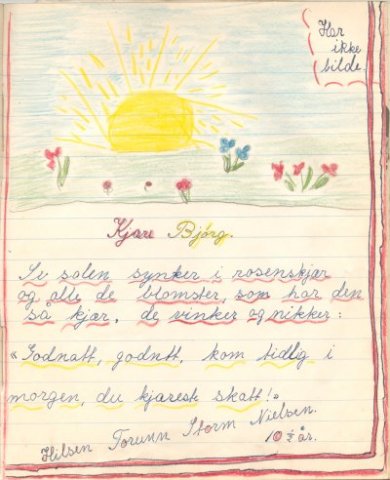 Har
ikke
bilde.
Kjære Bjørg.
Se solen synker i rosenskjær
og alle de blomster, som har den
så kjær, de vinker og nikker:
«Godnatt, godntt, kom tidlig i
morgen, du kjærest skatt!»
Hilsen Torunn Storm Nielsen.
10 ½ år.